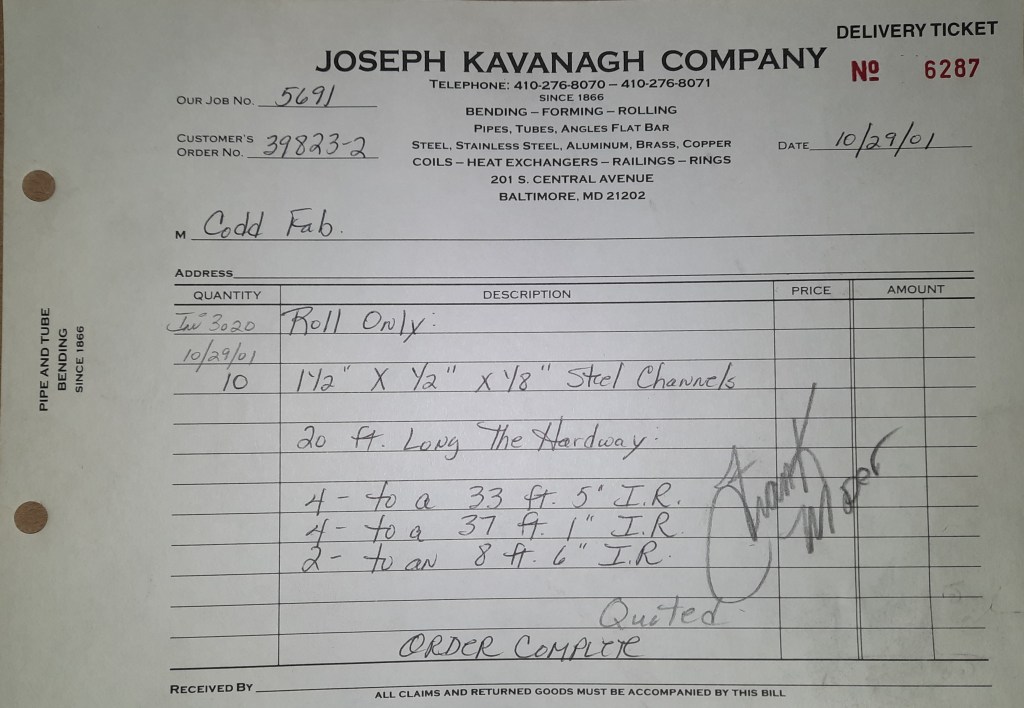 DELIVERY TICKET
JOSEPH KAVANAGH COMPANY
Nº 6287
TELEPHONE: 410-276-8070 – 410-276-8071
SINCE 1866
BENDING – FORMING – ROLLING
PIPES, TUBES, ANGLES FLAT BAR
STEEL, STAINLESS STEEL, ALUMINUM, BRASS, COPPER
COILS – HEAT EXCHANGERS – RAILINGS – RINGS
201 S. CENTRAL AVENUE
BALTIMORE, MD 21202
OUR JOB NO. 5691
CUSTOMER'S
ORDER NO. 39823-2
DATE 10/29/01
M Codd Fab.
ADDRESS
QUANTITY DESCRIPTION PRICE AMOUNT
Inv 3020 Roll Only:
10/29/01
10 1 1/2" X 1/2" X 1/8" Steel Channels
20 ft. Long The Hardway.
4 - to a 33 ft. 5" I.R.
4 - to a 37 ft. 1" I.R.
2 - to an 8 ft. 6" I.R.
Frank Moser
Quited
ORDER COMPLETE
RECEIVED BY
ALL CLAIMS AND RETURNED GOODS MUST BE ACCOMPANIED BY THIS BILL
PIPE AND TUBE
BENDING
SINCE 1866